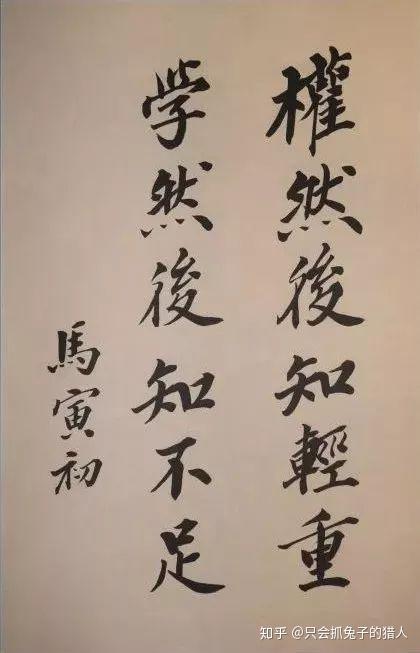 權然後知輕重
学然後知不足
馬寅初
知乎 @只会抓兔子的猎人